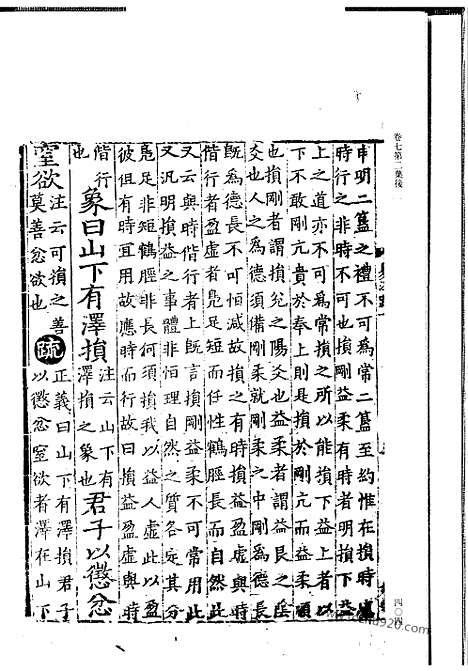 卷七第二葉後
申明二簋之禮不可為常二簋至約惟在損時應
時行之非時不可也損剛益柔有時者明損下益
上之道亦不可為常損之所以能損下益上者以
下不敢剛亢貴於奉上則是損於剛亢而益柔順
也損剛者謂損兌之陽爻也益柔者謂益艮之陰
爻也人之為德須備剛柔就剛柔之中剛為德長
既為德長不可恒減故損之有時損益盈虛與時
偕行者盈虛者鳧足短而任性鶴脛長而自然此
又云與時偕行者上既言損剛益柔不可常用此
又汎明損益之事體非恒理自然之質各定其分
鳧足非短鶴脛非長何須損我以益人虛此以盈
彼但有時宜用故應時行故曰損益盈虛與時
偕行
也 象曰山下有澤損注云山下有
澤損之象也君子以懲忿
窒欲注云可損之善
莫善忿欲也疏正義曰山下有澤損君子
以懲忿窒欲者澤在山下
四〇四